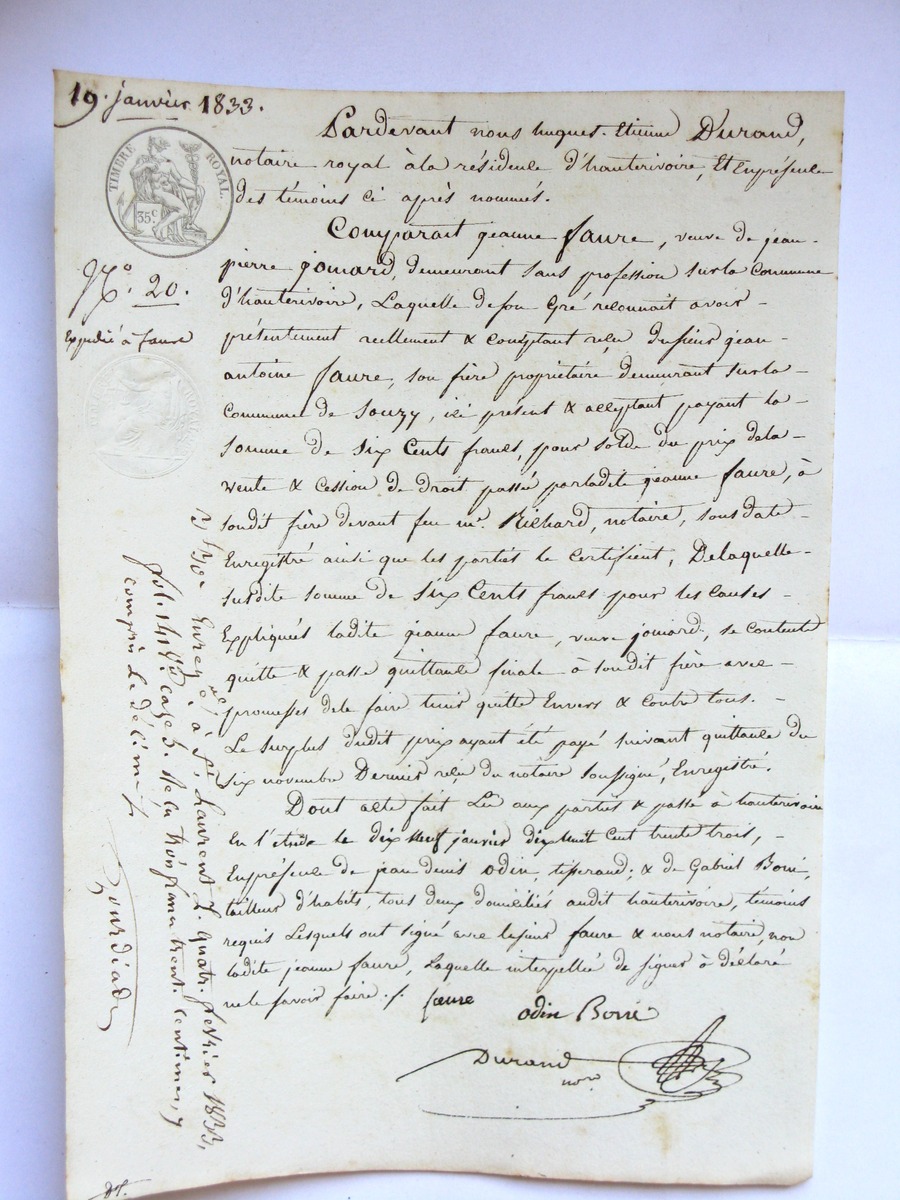 19. janvier 1833.
TIMBRE ROYAL.
35.c
N.o 20.
Expédié à faure
Pardevant nous hugues-Etienne Durand,
notaire royal à la résidence d'hauterivoire, Et Enprésence
des témoins ci après nommés.
Comparait jeanne faure, veuve de jean-
pierre jomard, demeurant sans profession sur la Commune
d'hauterivoire, Laquelle de son Gré reconnait avoir -
présentement reellement & comptant reçu du sieur jean-
antoine faure, son frère propriétaire demeurant sur la -
Commune de Souzy, ici présent & acceptant payant la -
somme de six Cents francs, pour solde du prix dela -
vente & Cession de droit passée parladite jeanne faure, à
sondit frère devant feu m.e Richard, notaire, sous date -
Enregistré ainsi que les parties le certifient, De laquelle -
susdite somme de six Cents francs pour les causes -
Expliquées ladite jeanne faure, veuve jomard, se contente
quitte & passe quittance finale à sondit frère avec -
promesses dele faire tenir quitte Envers & contre tous. -
Le surplus dudit prix ayant été payé suivant quittance du
six novembre Dernier reçu du notaire soussigné, Enregistré.
Dont acte fait Lu aux parties & passé à hauterivoire
En l'étude le dix neuf janvier dix huit cent trente trois, -
En présence de jean denis odin, tisserand, & de Gabriel Borié,
tailleur d'habits, tous deux domiciliés audit hauterivoire, témoins
requis Lesquels ont signé avec lesieur faure & nous notaire, non
ladite jeanne faure, Laquelle interpellée de signer à déclaré
ne le savoir faire ./.
faure
odin Borié
Durand
nore
Enregé à St. Laurent L. quatre fevrier 1833,
fol. case 5. Reçu trois francs trente centimes, y
compris le décime
Gourdiade